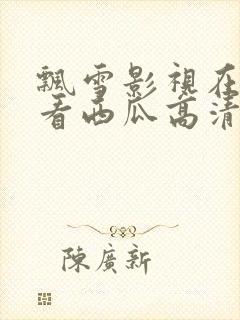 飄雪影視在
看西瓜高清
陳廣新